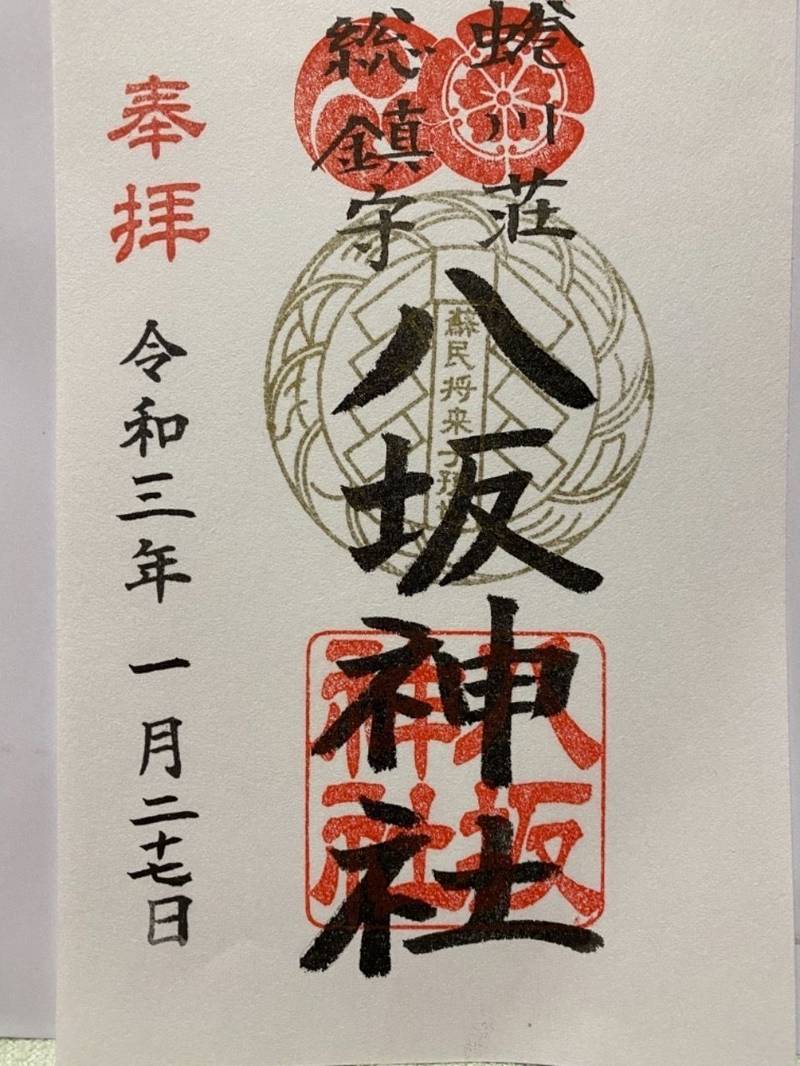 蜷川荘
総鎮守
八坂神社
蘇民将来子孫
八坂
神社
奉拝
令和三年一月二十七日